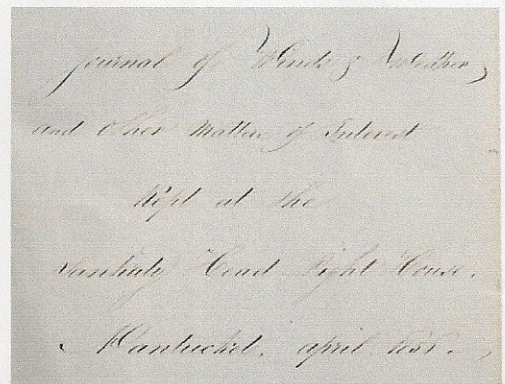 Journal of Winds & Weather,
and Other Matters of Interest
Kept at the
Sankaty Head Light House.
Nantucket. april